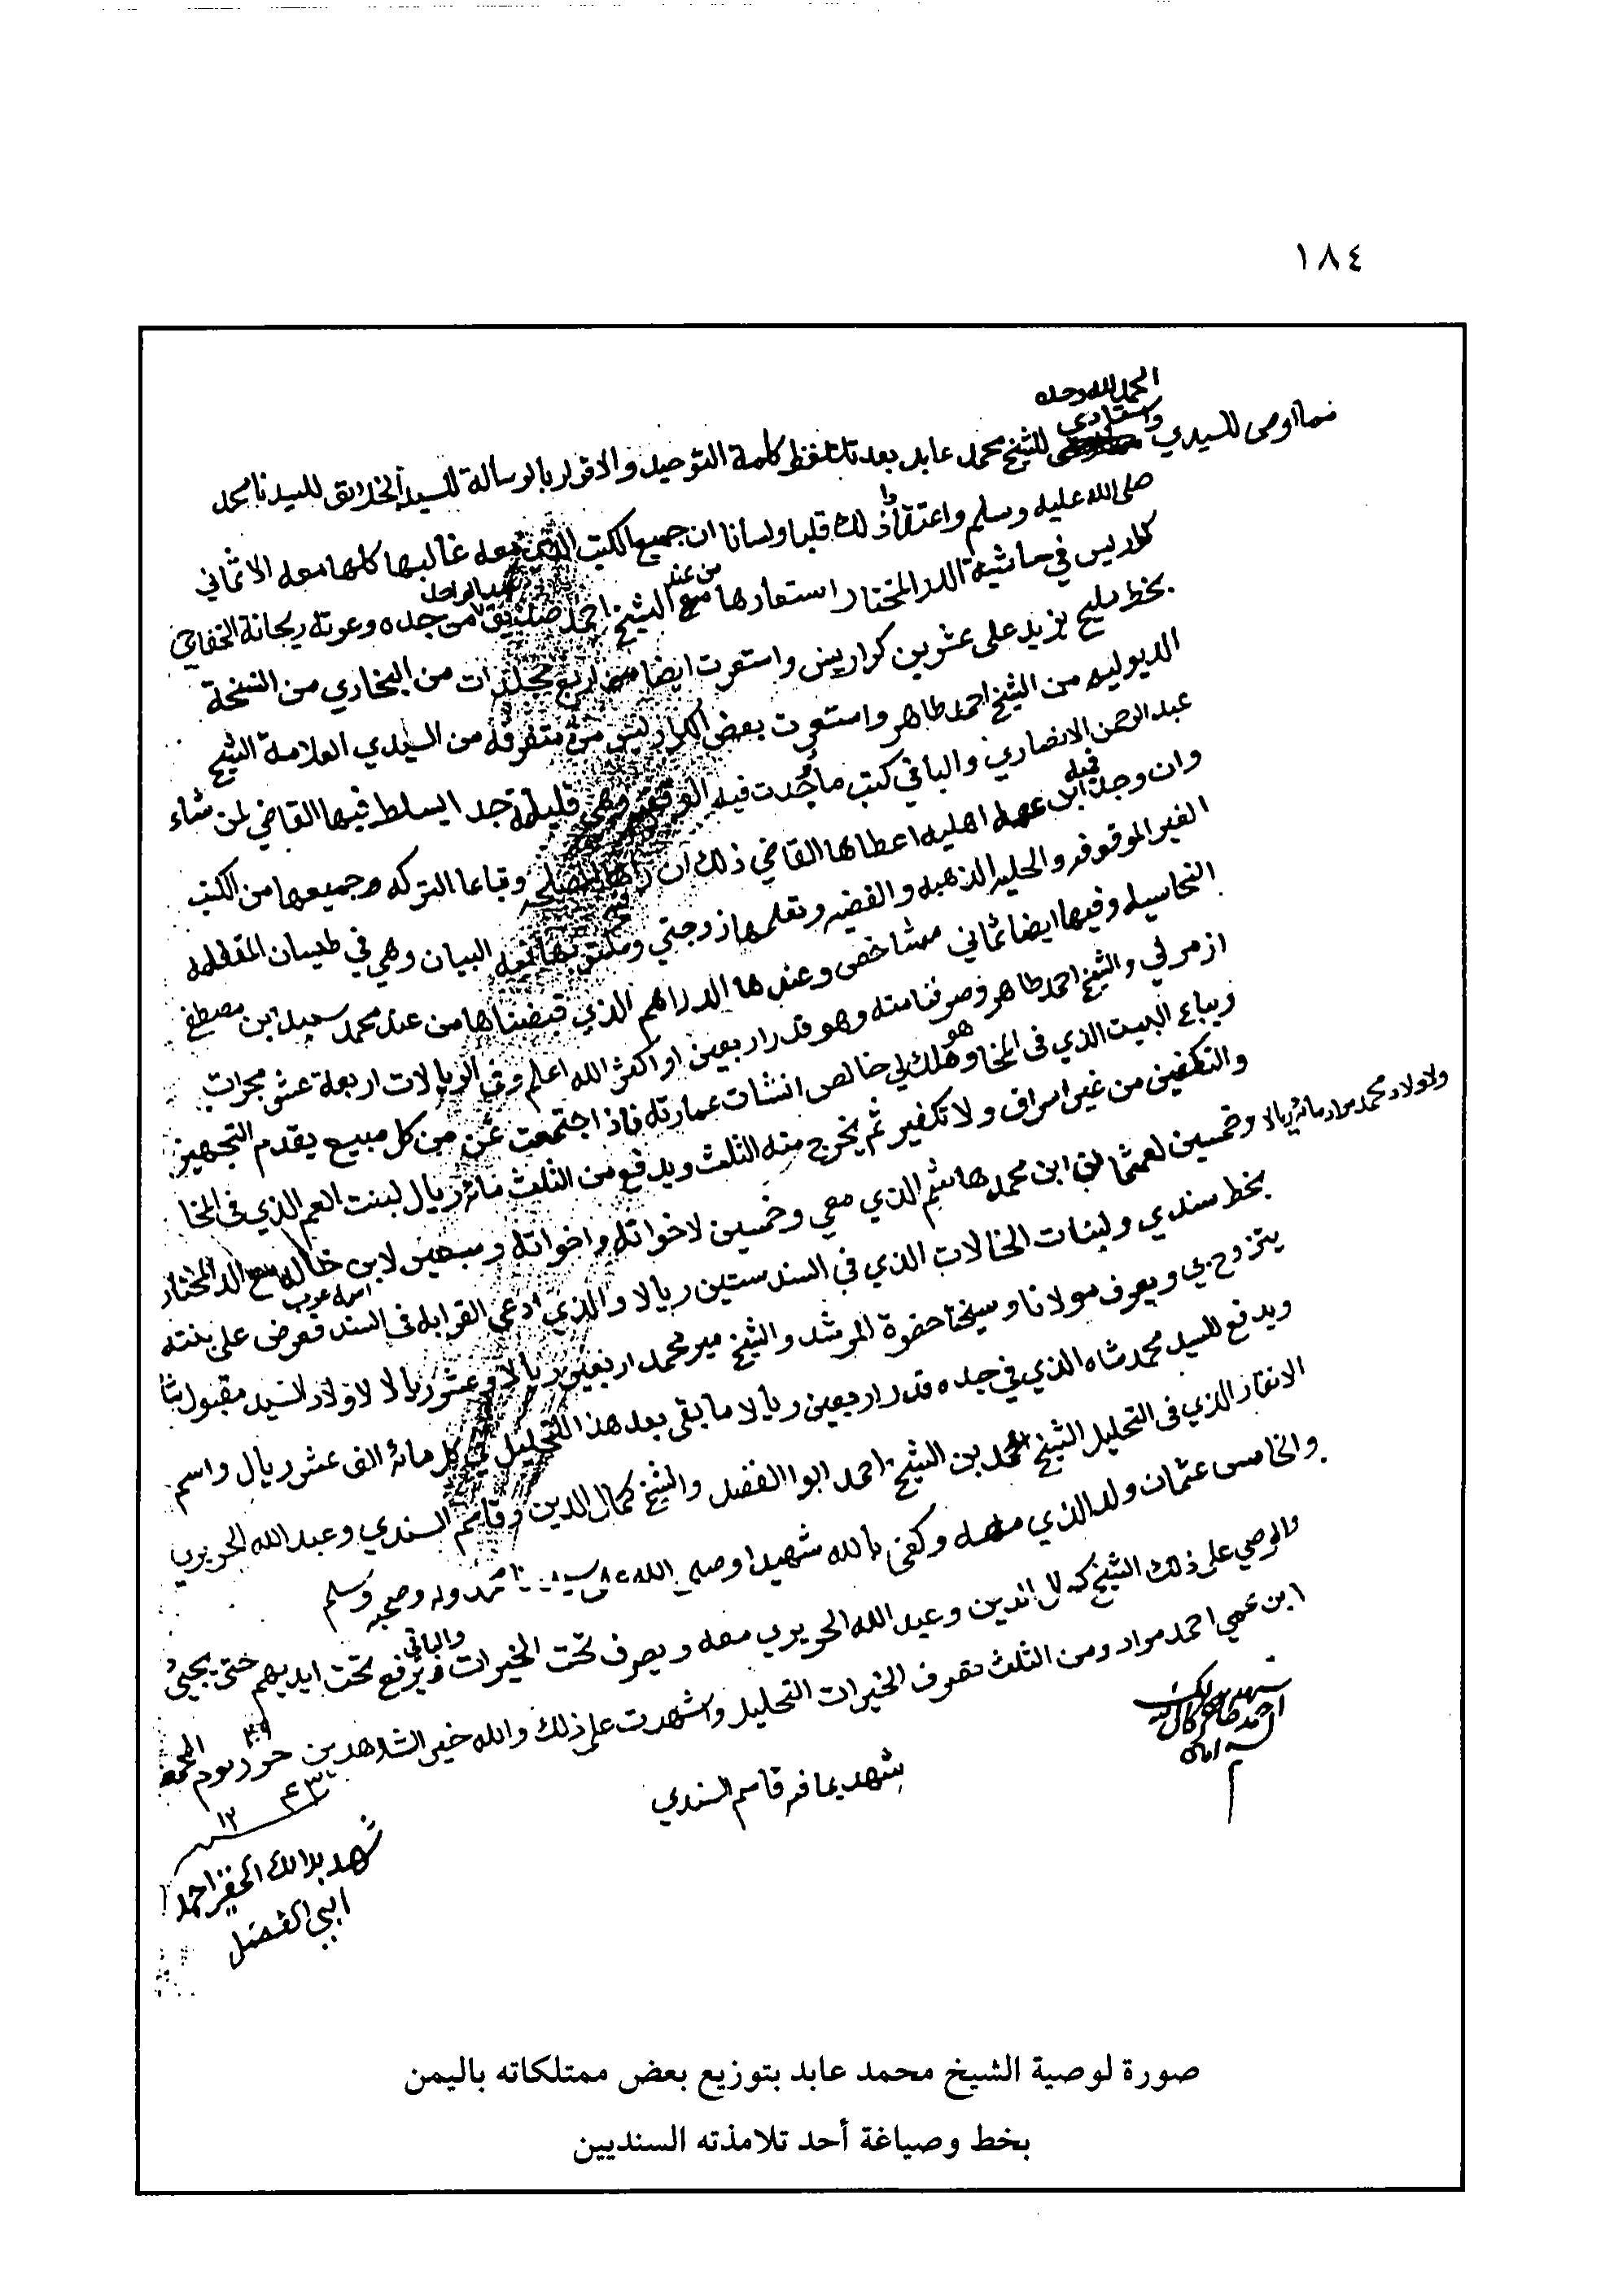 ١٨٤
الحمد لله وحده
مما اوصى للسيدي واستادي للشيخ محمد عابد بعد تلفظ كلمة التوحيد والاقرار بالرسالة للسيد الخلايق للسيدنا محمد
صلى الله عليه وسلم واعتقاد ذلك قلبا ولسانا ان جميع الكتب الذي معه غالبها كلها معه الا ثماني
كراريس في حاشية الدر المختار استعارها من عند الشيخ احمد صديق عبد الواحد من جده وعوته ريحانة الخفاجي
بخط مليح يزيد على عشرين كراريس واستعرت ايضا اربع مجلدات من البخاري من النسخة
الديوليه من الشيخ احمد طاهر واستعرت بعض الكراريس متفرقه من السيدي العلامة الشيخ
عبد الرحمن الانصاري والباقي كتب ما وجدت فيه الوقفية وهي قليلة جدا يسلط فيها القاضي لمن شاء
وان وجد فيه ابن عمه اهليه اعطاها القاضي ذلك ان رآها المصلحه وتباعا التركه وجميعها من الكتب
الغير الموقوفه والحليه الذهبيه والفضيه وتعلمها زوجتي ومكتوب فيها البيان وهي في طيسان المقفله
النحاسيه وفيها ايضا ثماني مشاخص وعندها الدراهم الذي قبضناها من عند محمد سعيد ابن مصطفى
ازمرلي والشيخ احمد طاهر وصرفنا منه وهو قدر اربعين او اكثر الله اعلم وفي الريالات اربعة عشر مجرات
ويباع البيت الذي في المخا وهو ملك لي خالص انشات عمارته فاذا اجتمعت ثمن من كل مبيع يقدم التجهيز
والتكفين من غير اسراف ولا تكفير ثم يخرج منه الثلث ويدفع من الثلث مائة ريال لبنت العم الذي في المخا
ولاولاد محمد مراد مائة ريالا وخمسين لعمثان ابن محمد هاشم الذي معي وخمسين لاخواته واخوانه وسبعين لابن خاله مع الدر المختار
بخط سندي ولبنات الخالات الذي في السند ستين ريالا والذي ادعى القرابه في السند فعرض علي بنته
يتزوج بي ويعرف مولانا وسيخنا حضرة المرشد والشيخ مير محمد اربعين ريالا وعشر ريالا لاولاد السيد مقبول
ويدفع للسيد محمد شاه الذي في جده قدر اربعين ريالا ما بقي بعد هذا التحليل في كل مائة الف عشر ريال واسم
الانفار الذي في التحليل الشيخ احمد بن الشيخ احمد ابو الفضل والشيخ كمال الدين وقاسم السندي وعبد الله الحريري
والخامس عثمان ولد الذي معه وكفى بالله شهيدا وصلى الله على سيدنا محمد وله وصحبه وسلم
والوصي على ذلك الشيخ كمال الدين وعبد الله الحريري معه ويصرف تحت الخيرات والباقي يرفع تحت ايديهم حتى يجيئ
ابن عمي احمد مراد ومن الثلث تصرف الخيرات التحليل واشهدت على ذلك والله خير الشاهدين حرر يوم الجمعه
شهد بما فيه قاسم السندي
شهد بذالك الحقير احمد
ابي الفضل
صورة لوصية الشيخ محمد عابد بتوزيع بعض ممتلكاته باليمن
بخط وصياغة أحد تلامذته السنديين